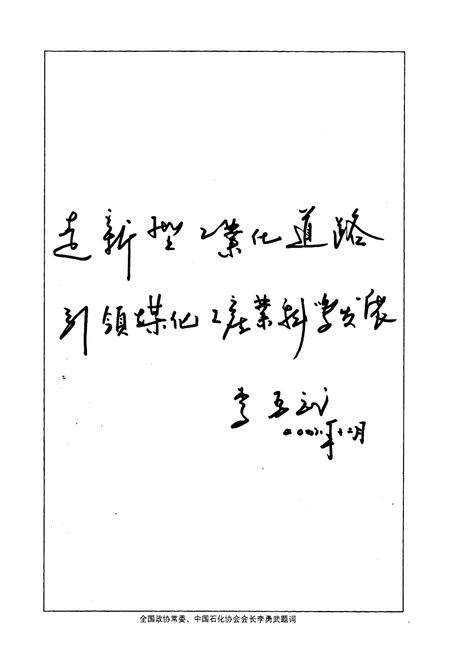 走新型工業化道路
引領煤化工產業科学发展
李勇武
二〇〇八年十二月
全国政协常委、中国石化协会会长李勇武题词